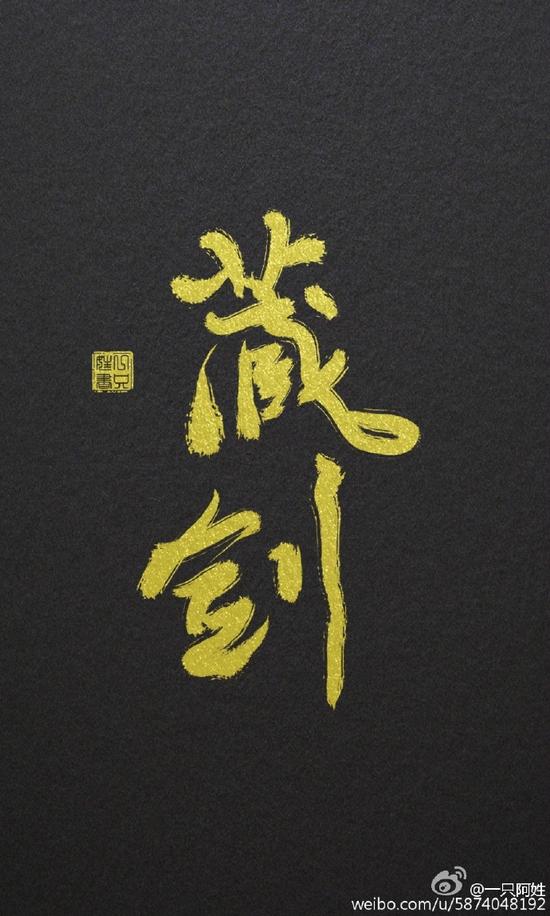 藏剑
@一只阿姓
weibo.com/u/5874048192